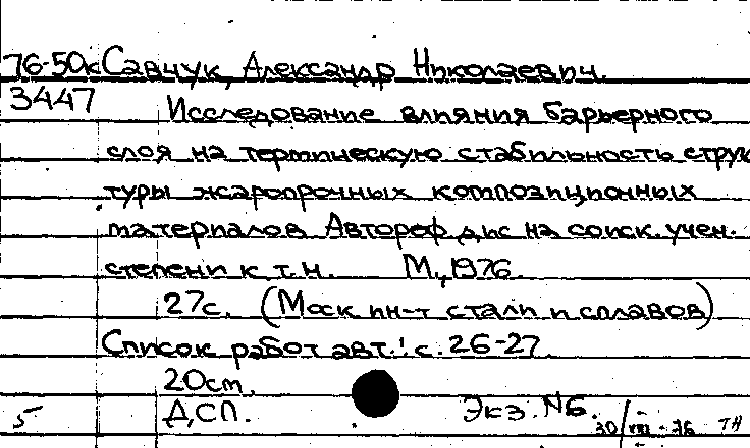 76-50к Савчук, Александр Николаевич.
3447 Исследование влияния барьерного
слоя на термическую стабильность струк
туры жаропрочных композиционных
материалов Автореф дис на соиск. учен.
степени к. т. н. М., 1976.
27с. (Моск ин-т стали и сплавов)
Список работ авт.: с. 26-27.
20см.
5 ДСП. Экз. N6. 30/VIII-76